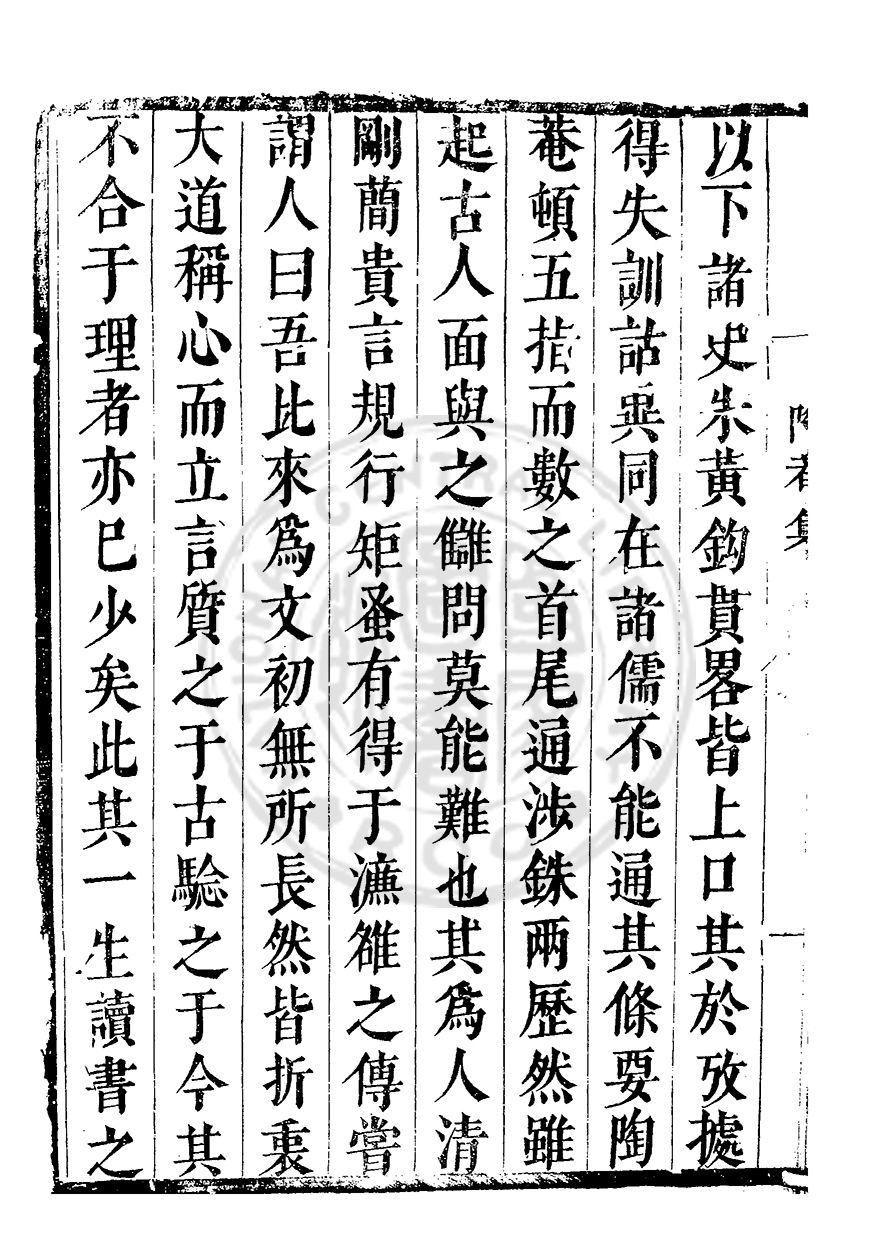 陶菴集
以下諸史朱黃鉤貫畧皆上口其於攷據
得失訓詁異同在諸儒不能通其條要陶
菴頓五指而數之首尾通涉銖兩歷然雖
起古人面與之讎問莫能難也其爲人清
剛簡貴言規行矩蚤有得于濂雒之傳嘗
謂人曰吾比來爲文初無所長然皆折衷
大道稱心而立言質之于古驗之于今其
不合于理者亦已少矣此其一生讀書之